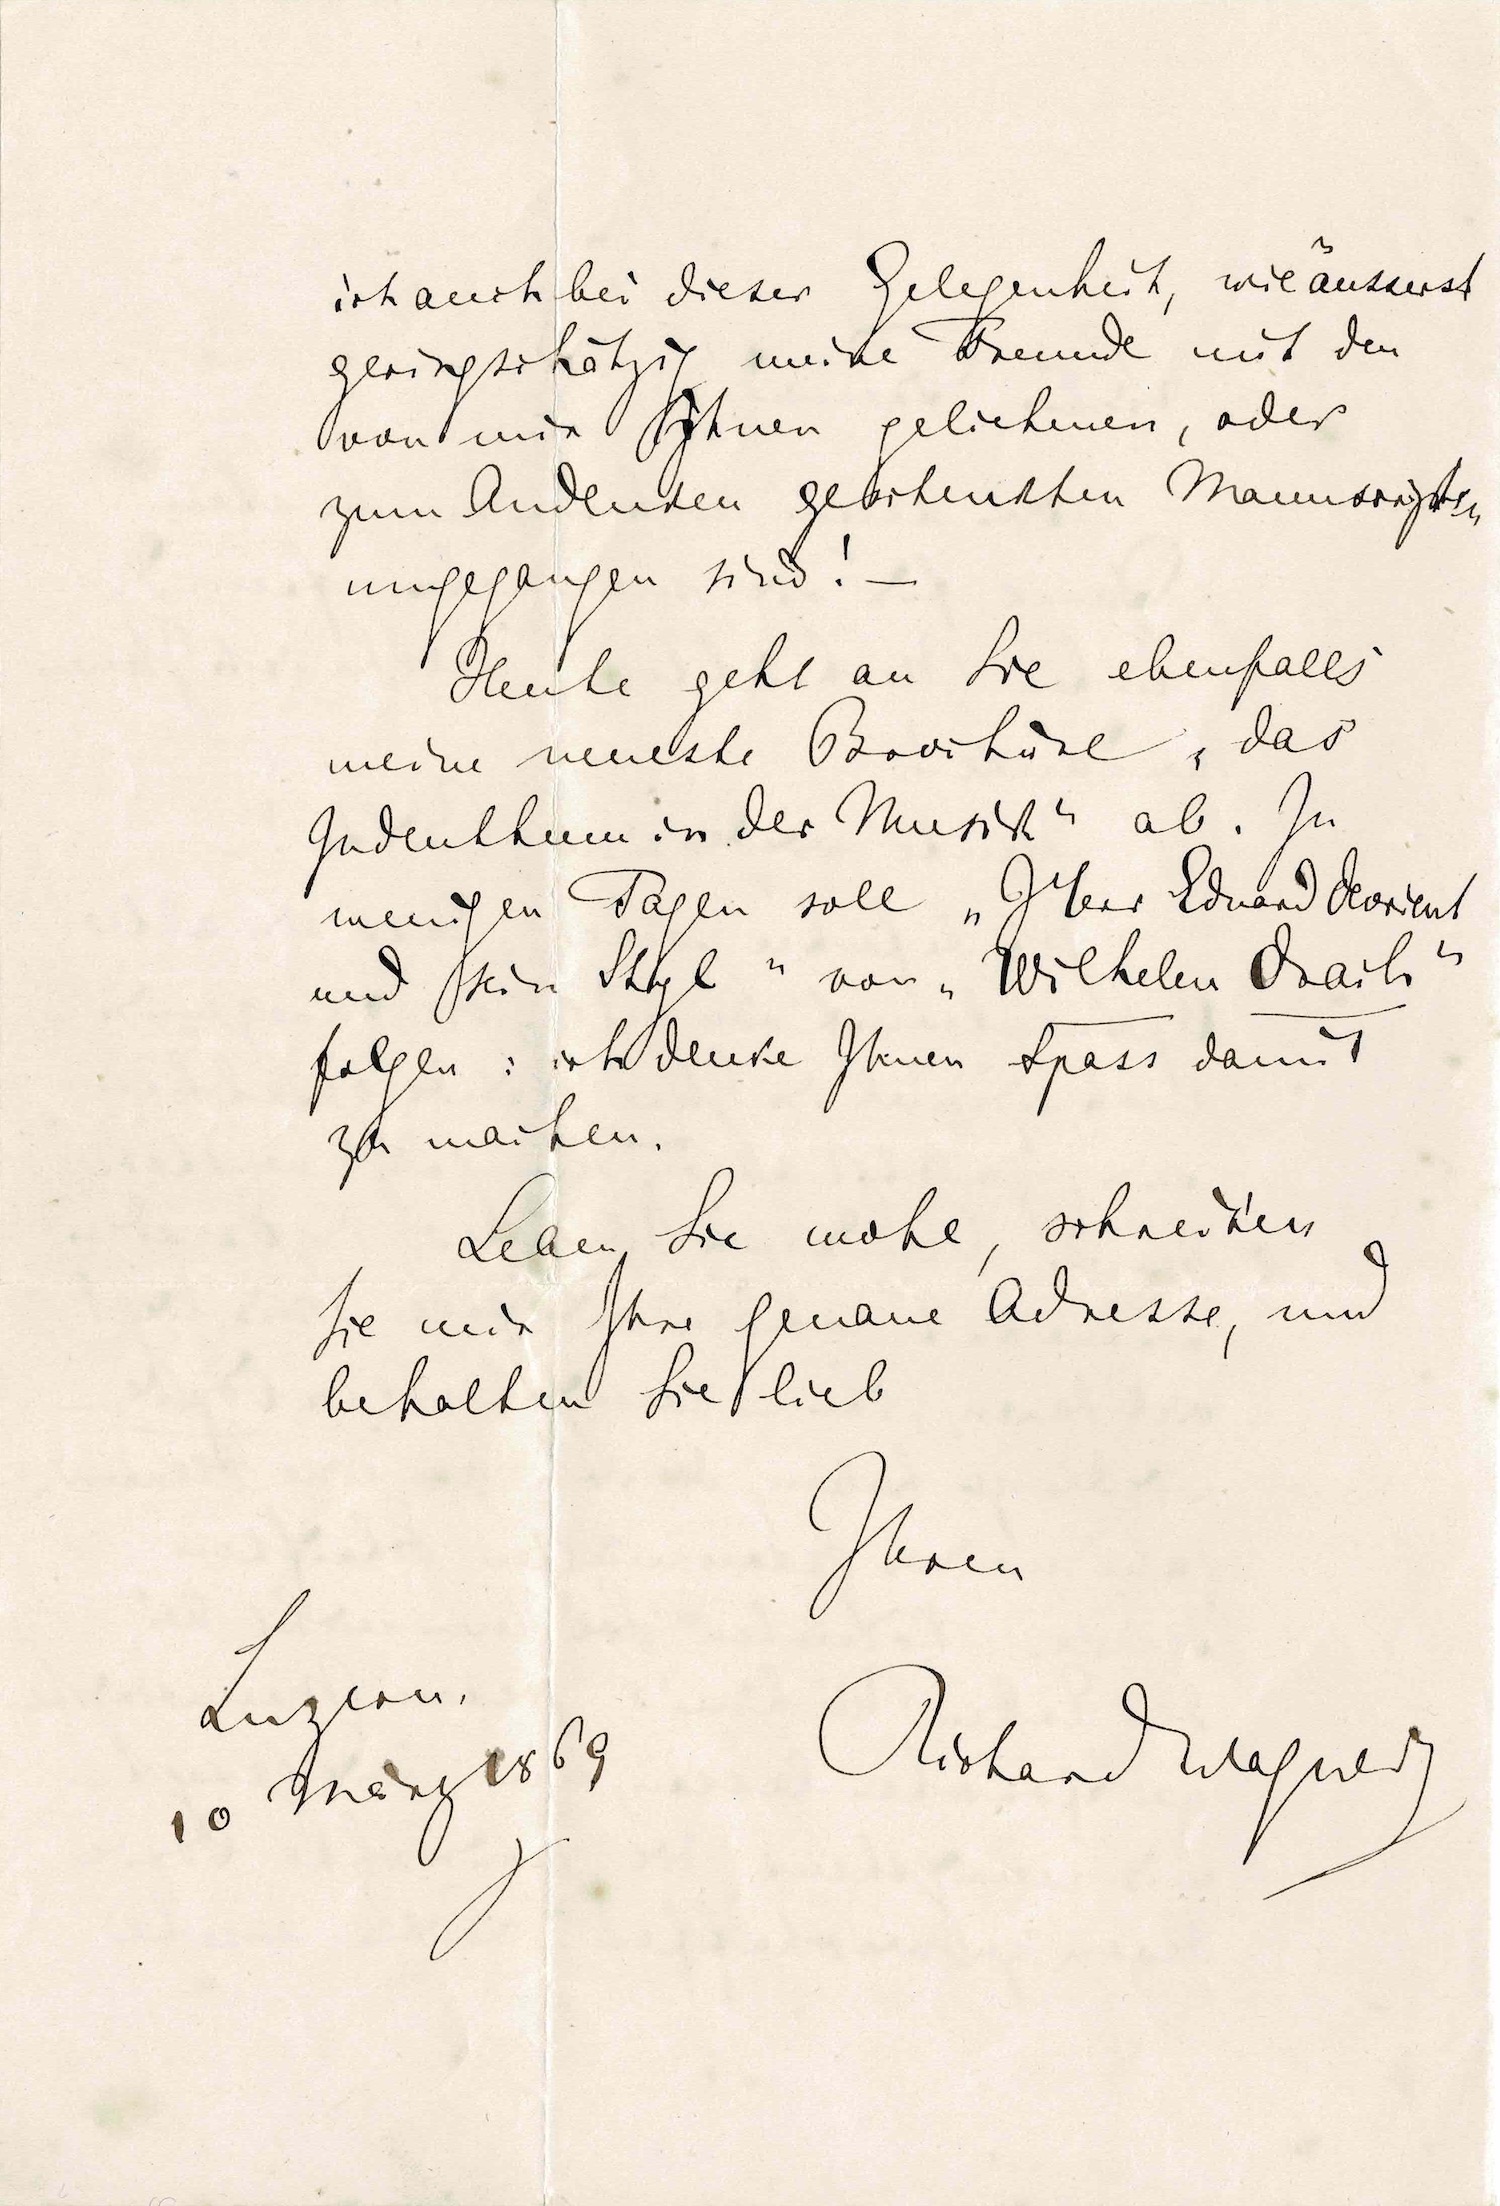 ich auch bei dieser Gelegenheit, wie äusserst
geringschätzig meine Freunde mit den
von mir Ihnen geliehenen, oder
zum Andenken geschenkten Manuscripten
umgegangen sind! —
Heute geht an Sie ebenfalls
meine neueste Brochüre „das
Judenthum in der Musik“ ab. In
wenigen Tagen soll „Herr Eduard Devrient
und sein Styl“ von „Wilhelm Drach“
folgen: ich denke Ihnen Spass damit
zu machen.
Leben Sie wohl, schreiben
Sie mir Ihre genaue Adresse, und
behalten Sie lieb
Ihren
Richard Wagner
Luzern.
10 März 1869